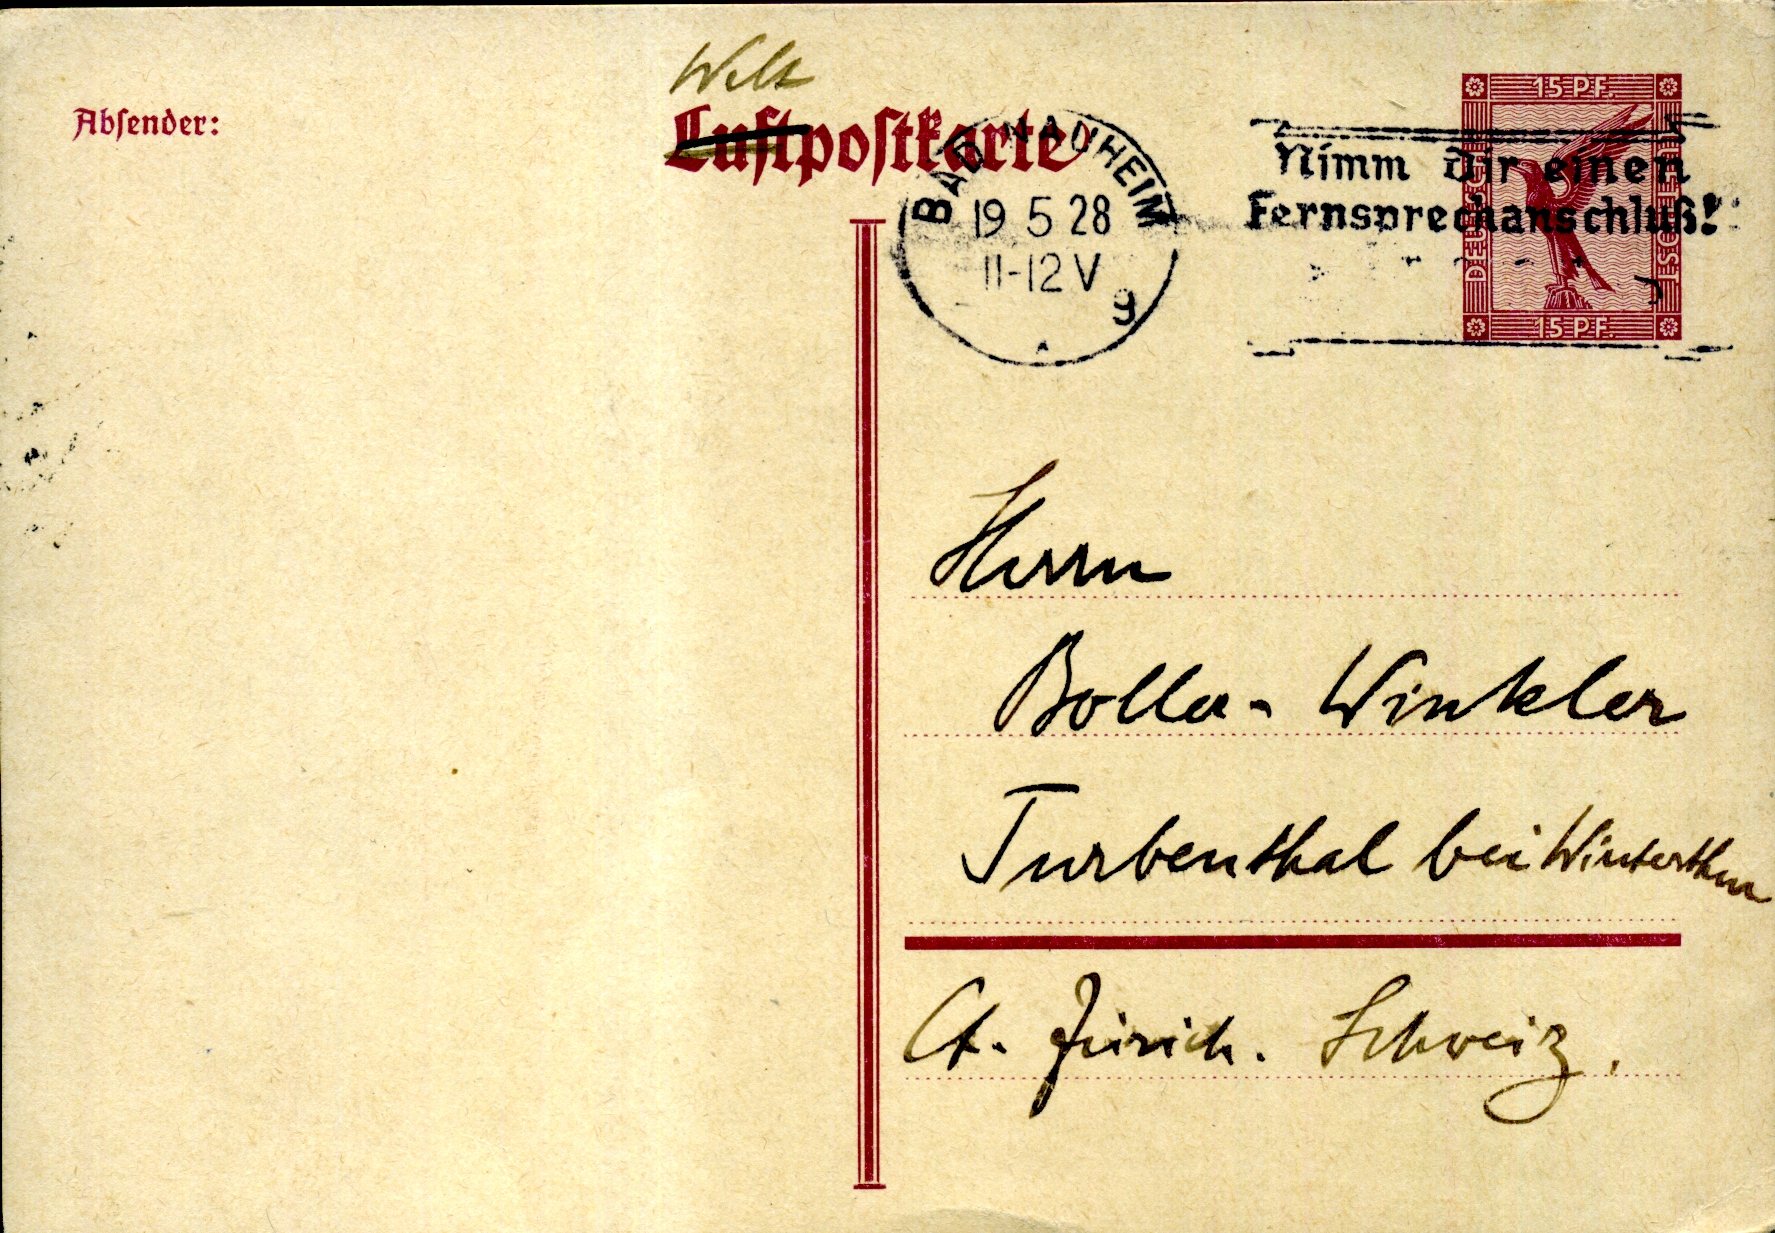 Welt
Absender:
Luftpostkarte
15 PF.
BAD NAUHEIM
19 5 28
11-12 V
g
Nimm Dir einen
Fernsprechanschluß!
DEUTSCHE
15 PF.
Herrn
Boller-Winkler
Turbenthal bei Winterthur
Ct. Zürich. Schweiz.